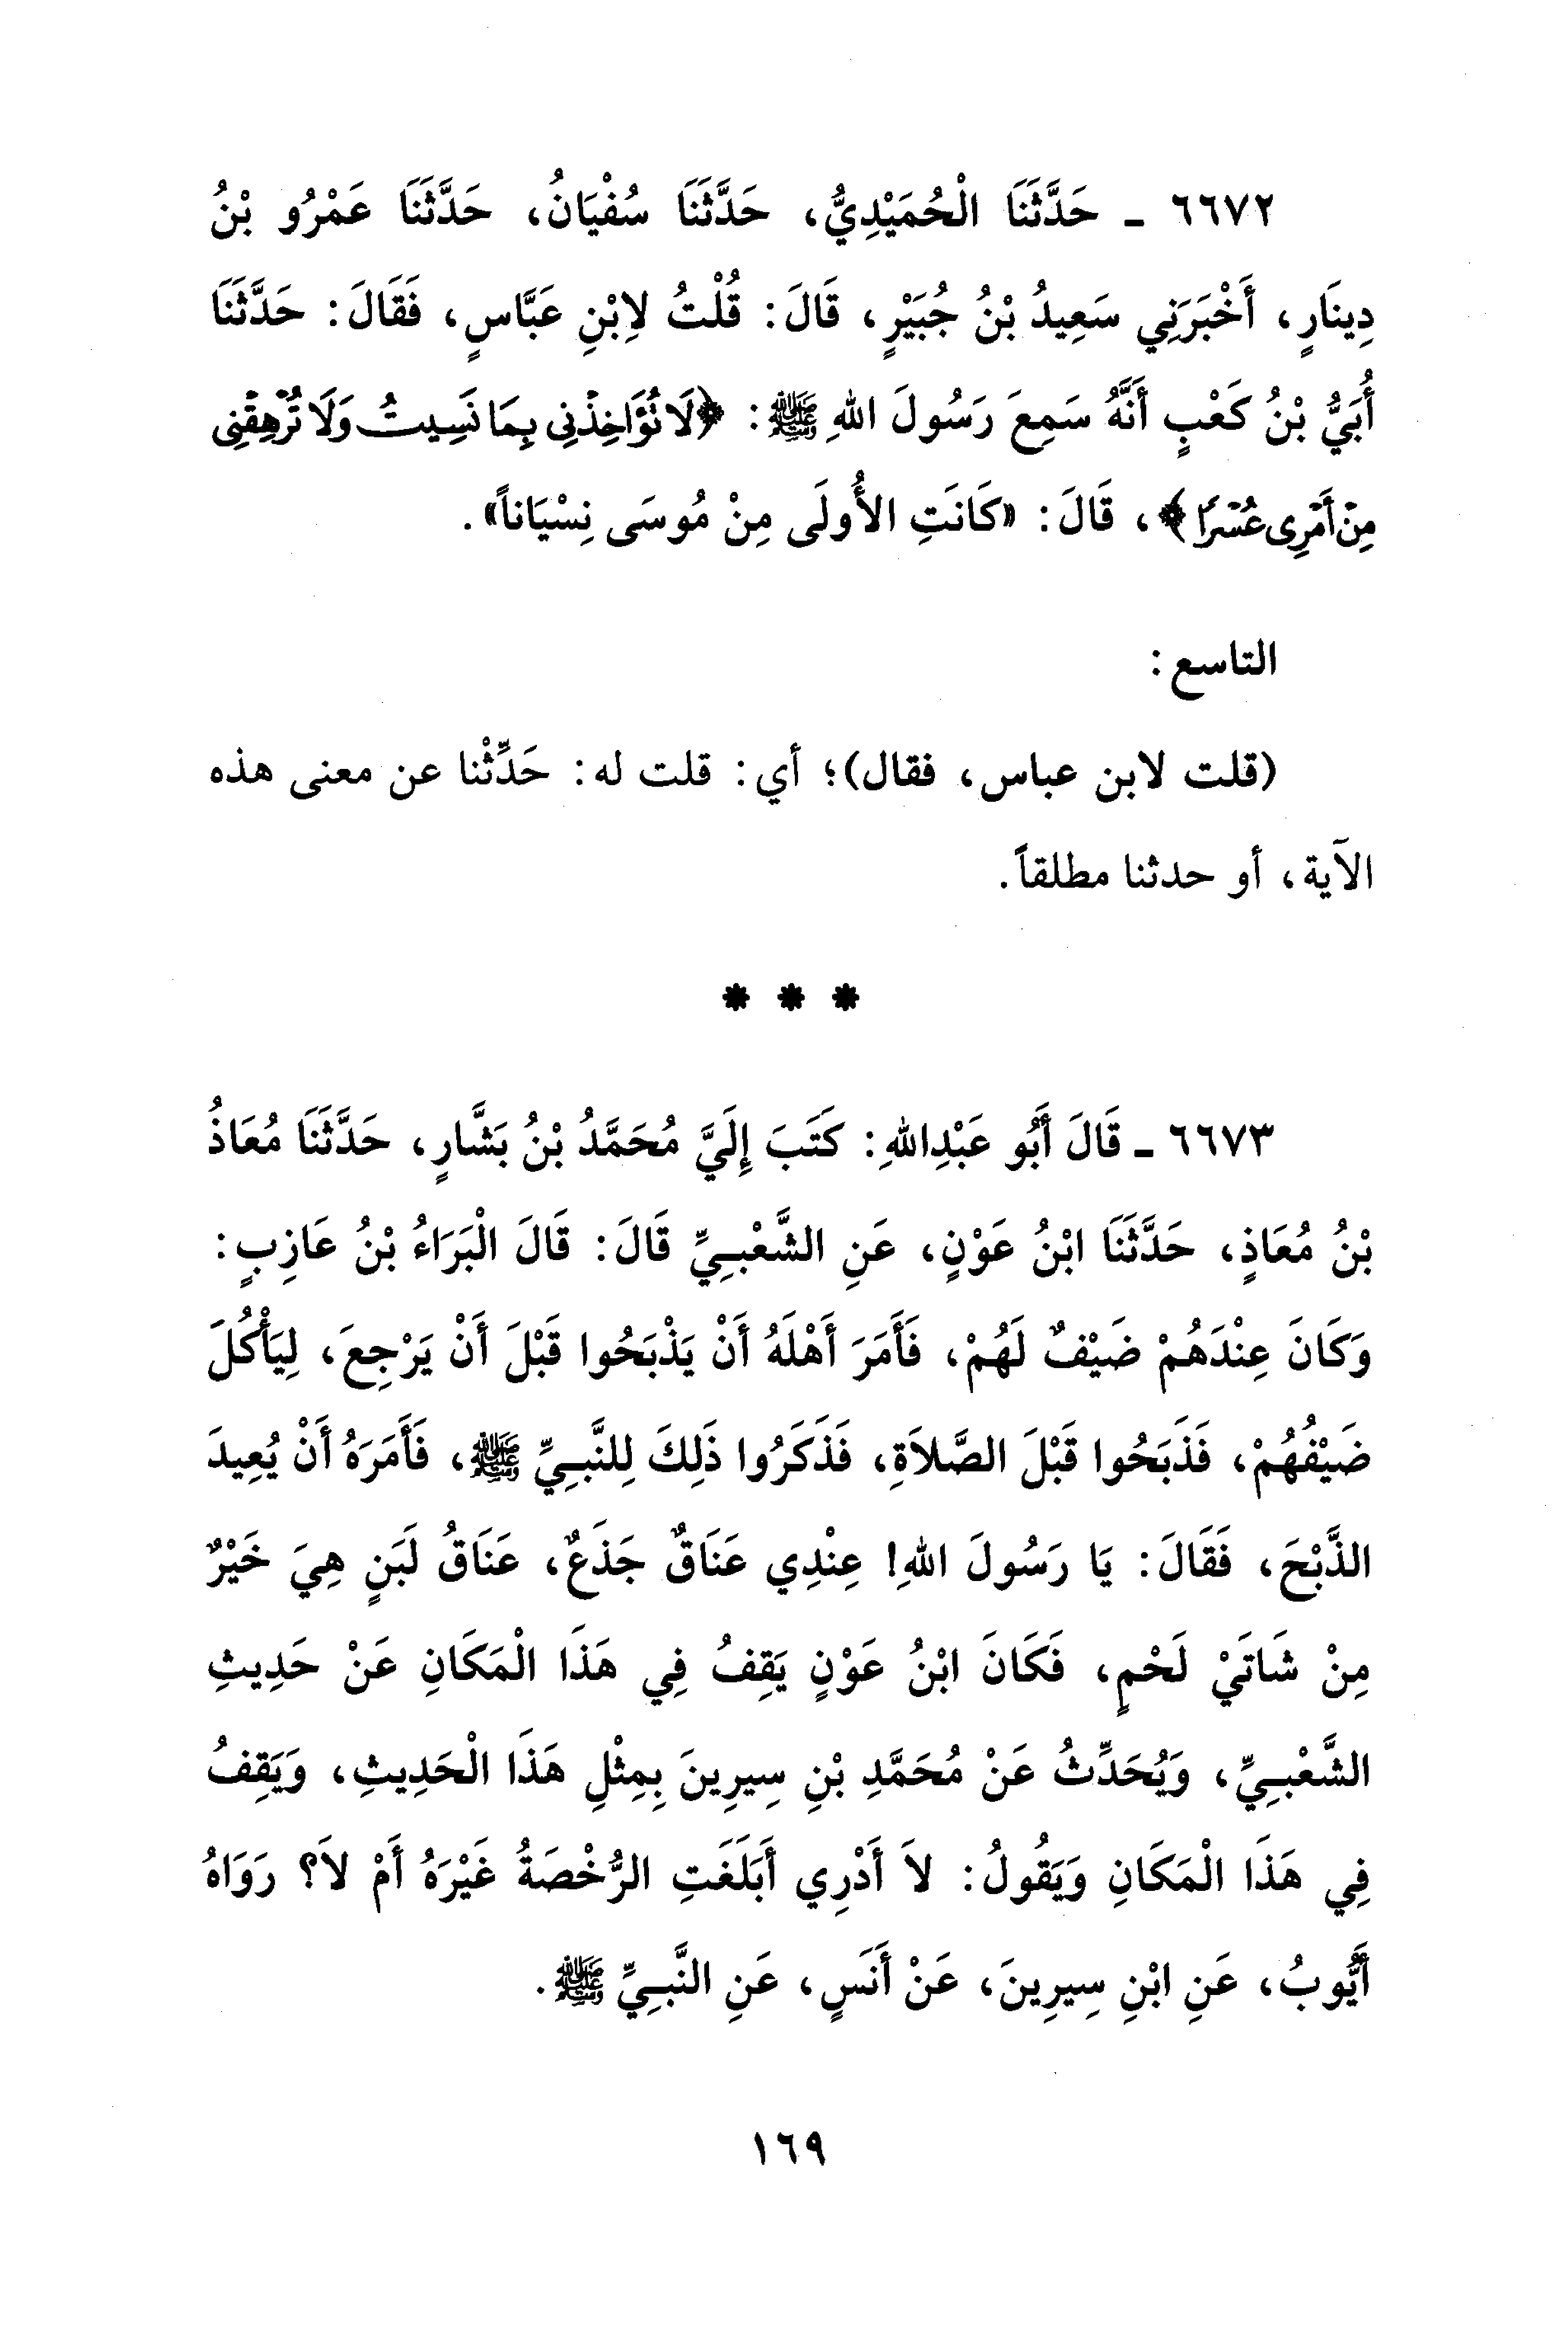 ٦٦٧٢ ـ حَدَّثَنَا الْحُمَيْدِيُّ، حَدَّثَنَا سُفْيَانُ، حَدَّثَنَا عَمْرُو بْنُ
دِينَارٍ، أَخْبَرَنِي سَعِيدُ بْنُ جُبَيْرٍ، قَالَ: قُلْتُ لاِبْنِ عَبَّاسٍ، فَقَالَ: حَدَّثَنَا
أُبَيُّ بْنُ كَعْبٍ أَنَّهُ سَمِعَ رَسُولَ اللهِ ﷺ: ﴿لَا تُؤَاخِذْنِي بِمَا نَسِيتُ وَلَا تُرْهِقْنِي
مِنْ أَمْرِي عُسْرًا﴾، قَالَ: «كَانَتِ الأُولَى مِنْ مُوسَى نِسْيَاناً».
التاسع:
(قلت لابن عباس، فقال)؛ أي: قلت له: حَدِّثْنا عن معنى هذه
الآية، أو حدثنا مطلقاً.
* * *
٦٦٧٣ ـ قَالَ أَبُو عَبْدِاللهِ: كَتَبَ إِلَيَّ مُحَمَّدُ بْنُ بَشَّارٍ، حَدَّثَنَا مُعَاذُ
بْنُ مُعَاذٍ، حَدَّثَنَا ابْنُ عَوْنٍ، عَنِ الشَّعْبِيِّ قَالَ: قَالَ الْبَرَاءُ بْنُ عَازِبٍ:
وَكَانَ عِنْدَهُمْ ضَيْفٌ لَهُمْ، فَأَمَرَ أَهْلَهُ أَنْ يَذْبَحُوا قَبْلَ أَنْ يَرْجِعَ، لِيَأْكُلَ
ضَيْفُهُمْ، فَذَبَحُوا قَبْلَ الصَّلاَةِ، فَذَكَرُوا ذَلِكَ لِلنَّبِيِّ ﷺ، فَأَمَرَهُ أَنْ يُعِيدَ
الذَّبْحَ، فَقَالَ: يَا رَسُولَ اللهِ! عِنْدِي عَنَاقٌ جَذَعٌ، عَنَاقُ لَبَنٍ هِيَ خَيْرٌ
مِنْ شَاتَيْ لَحْمٍ، فَكَانَ ابْنُ عَوْنٍ يَقِفُ فِي هَذَا الْمَكَانِ عَنْ حَدِيثِ
الشَّعْبِيِّ، وَيُحَدِّثُ عَنْ مُحَمَّدِ بْنِ سِيرِينَ بِمِثْلِ هَذَا الْحَدِيثِ، وَيَقِفُ
فِي هَذَا الْمَكَانِ وَيَقُولُ: لاَ أَدْرِي أَبَلَغَتِ الرُّخْصَةُ غَيْرَهُ أَمْ لاَ؟ رَوَاهُ
أَيُّوبُ، عَنِ ابْنِ سِيرِينَ، عَنْ أَنَسٍ، عَنِ النَّبِيِّ ﷺ.
١٦٩